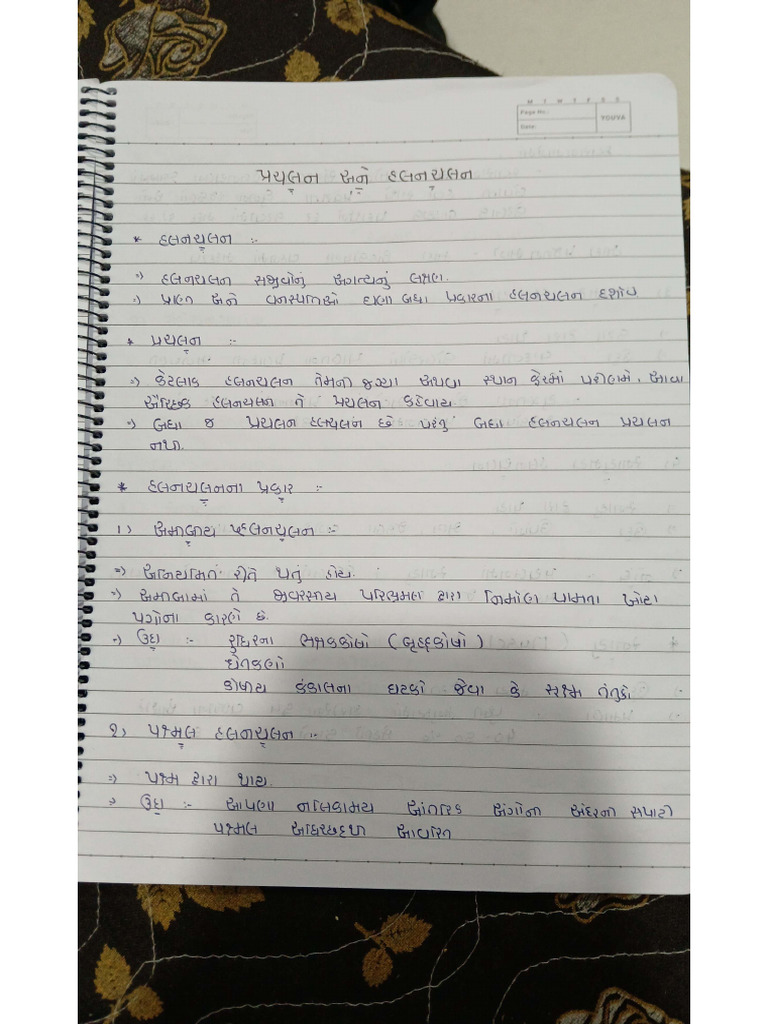 M T W T F S S
Page No.:
Date:
YOUVA
પ્રચલન અને હલનચલન
* હલનચલન :-
=) હલનચલન સજીવોનું અગત્યનું લક્ષણ.
=) પ્રાણી અને વનસ્પતિઓ ઘણા બધા પ્રકારના હલનચલન દર્શાવે
* પ્રચલન :-
=) કેટલાક હલનચલન તેમની જગ્યા અથવા સ્થાન ફેરમાં પરીણમે. આવા
ઐચ્છિક હલનચલન ને પ્રચલન કહેવાય.
=) બધા જ પ્રચલન હલચલન છે પરંતુ બધા હલનચલન પ્રચલન
નથી.
* હલનચલનના પ્રકાર :-
1) અમીબીય હલનચલન :-
=) અનિયમિત રીતે થતું હોય.
=) અમીબામાં તે જીવરસીય પરિભ્રમણ દ્વારા નિર્માણ પામતા ખોટા
પગોના કારણે છે.
=) ઉદા :- રુધિરના ભક્ષકકોષો (બૃહદ્કોષો)
શ્વેતકણો
કોષીય કંકાલના ઘટકો જેવા કે સૂક્ષ્મ તંતુકો.
2) પક્ષ્મલ હલનચલન :-
=) પક્ષ્મ દ્વારા થાય.
=) ઉદા :- આપણા નલિકામય આંતરિક અંગોના અંદરની સપાટી
પક્ષ્મલ અધિચ્છદથી આવરિત